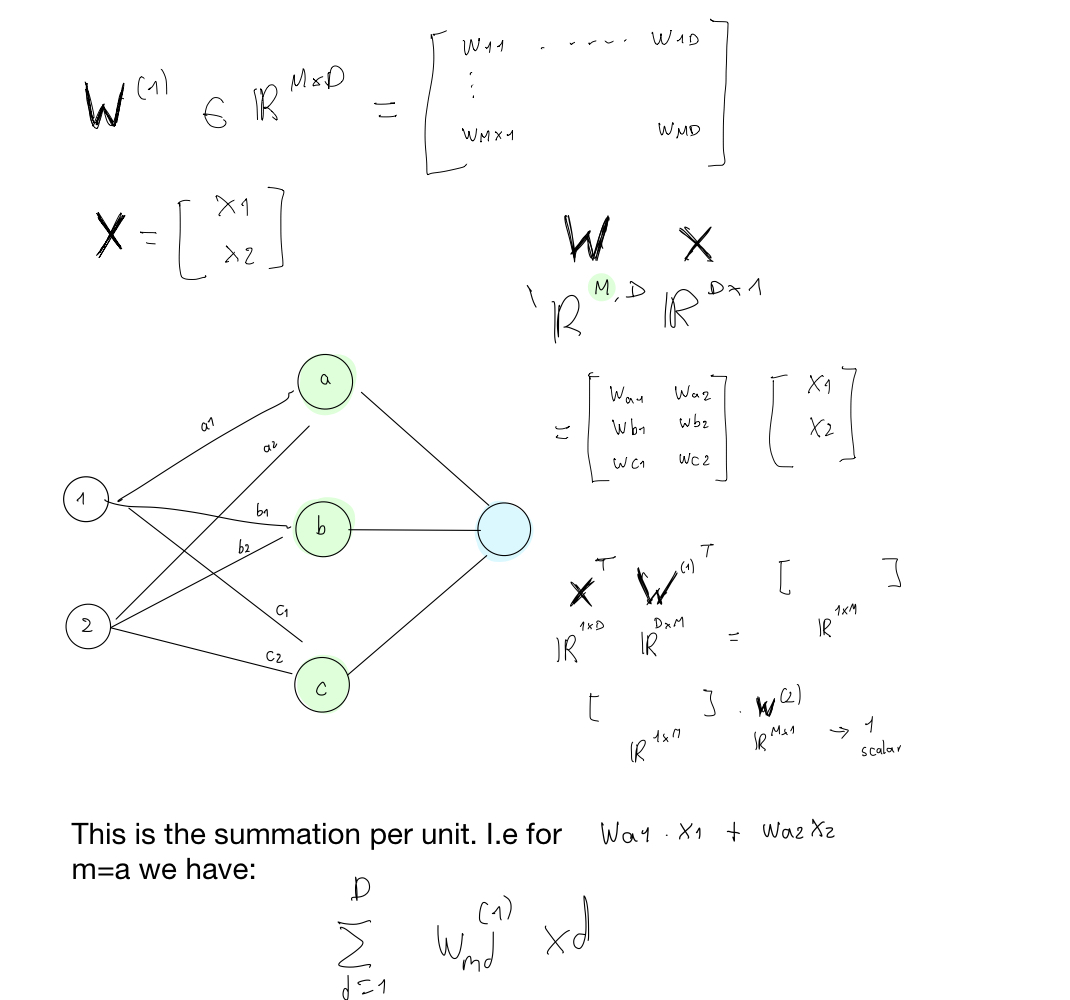 W^(1) ∈ ℝ^M×D = [ W11 . ----. W1D
⋮
WM×1 WMD ]
X = [ X1
X2 ]
W X
ℝ^M,D ℝ^D×1
= [ Wa1 Wa2 ] [ X1 ]
[ Wb1 Wb2 ] [ X2 ]
[ Wc1 Wc2 ]
a
a1
a2
1
b1
b
b2
2
c1
c2
c
X^T W^(1)^T [ ]
ℝ^1×D ℝ^D×M = ℝ^1×M
[ ] . W^(2)
ℝ^1×M ℝ^M×1 → 1
scalar
This is the summation per unit. I.e for Wa1 . X1 + Wa2 X2
m=a we have:
D
Σ W_md^(1) xd
d=1